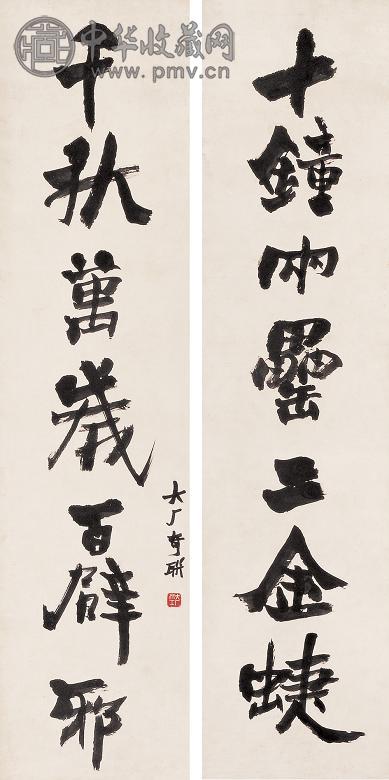 中华收藏网
www.pmv.cn
十鐘兩罍二金蜨
千秋萬歲百辟邪
大厂 聯